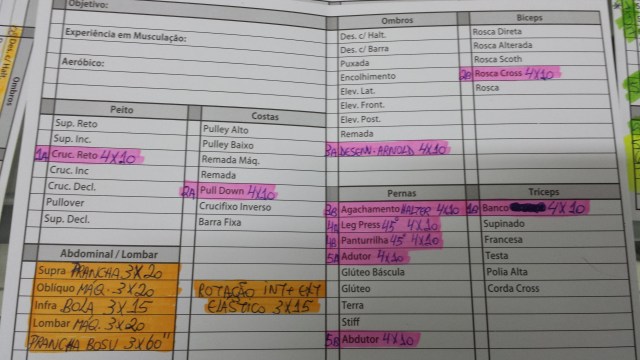 Objetivo:
Experiência em Musculação:
Aeróbico:
Peito
Sup. Reto
Sup. Inc.
1A Cruc. Reto 4X10
Cruc. Inc
Cruc. Decl.
Pullover
Sup. Decl.
Costas
Pulley Alto
Pulley Baixo
Remada Máq.
Remada
2A Pull Down 4X10
Crucifixo Inverso
Barra Fixa
Abdominal / Lombar
Supra PRANCHA 3X20
Oblíquo MAQ. 3X20
Infra BOLA 3X15
Lombar MAQ. 3X20
PRANCHA BOSU 3X60"
ROTAÇÃO INT+EXT
ELÁSTICO 3X15
Ombros
Des. c/ Halt.
Des. c/ Barra
Puxada
Encolhimento
Elev. Lat.
Elev. Front.
Elev. Post.
Remada
3A DESENV. ARNOLD 4X10
Bíceps
Rosca Direta
Rosca Alterada
Rosca Scoth
2B Rosca Cross 4X10
Rosca
Pernas
3B Agachamento HALTER 4X10
4A Leg Press 45° 4X10
4B Panturrilha 45° 4X10
5A Adutor 4X10
Glúteo Báscula
Glúteo
Terra
Stiff
5B Abdutor 4X10
Tríceps
1B Banco 4X10
Supinado
Francesa
Testa
Polia Alta
Corda Cross
Ombros
Des. c/ Halt.